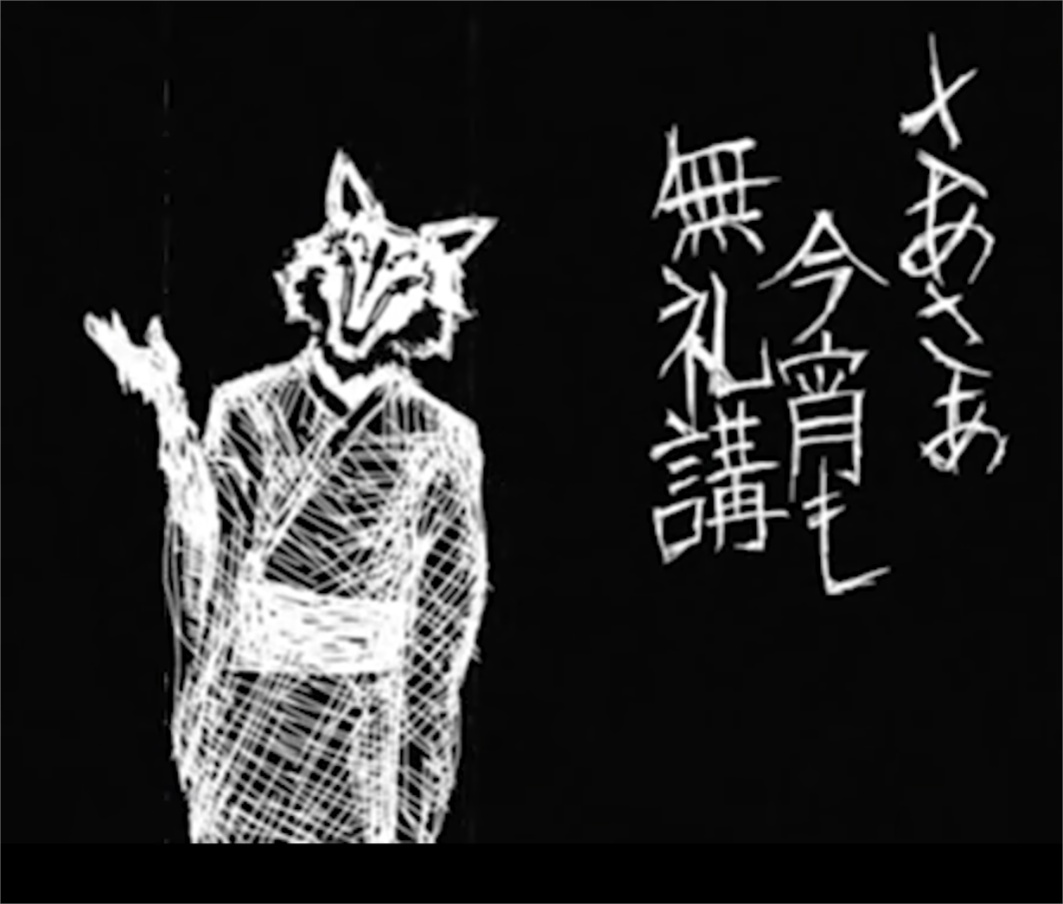 さあさあ
今宵も
無礼講